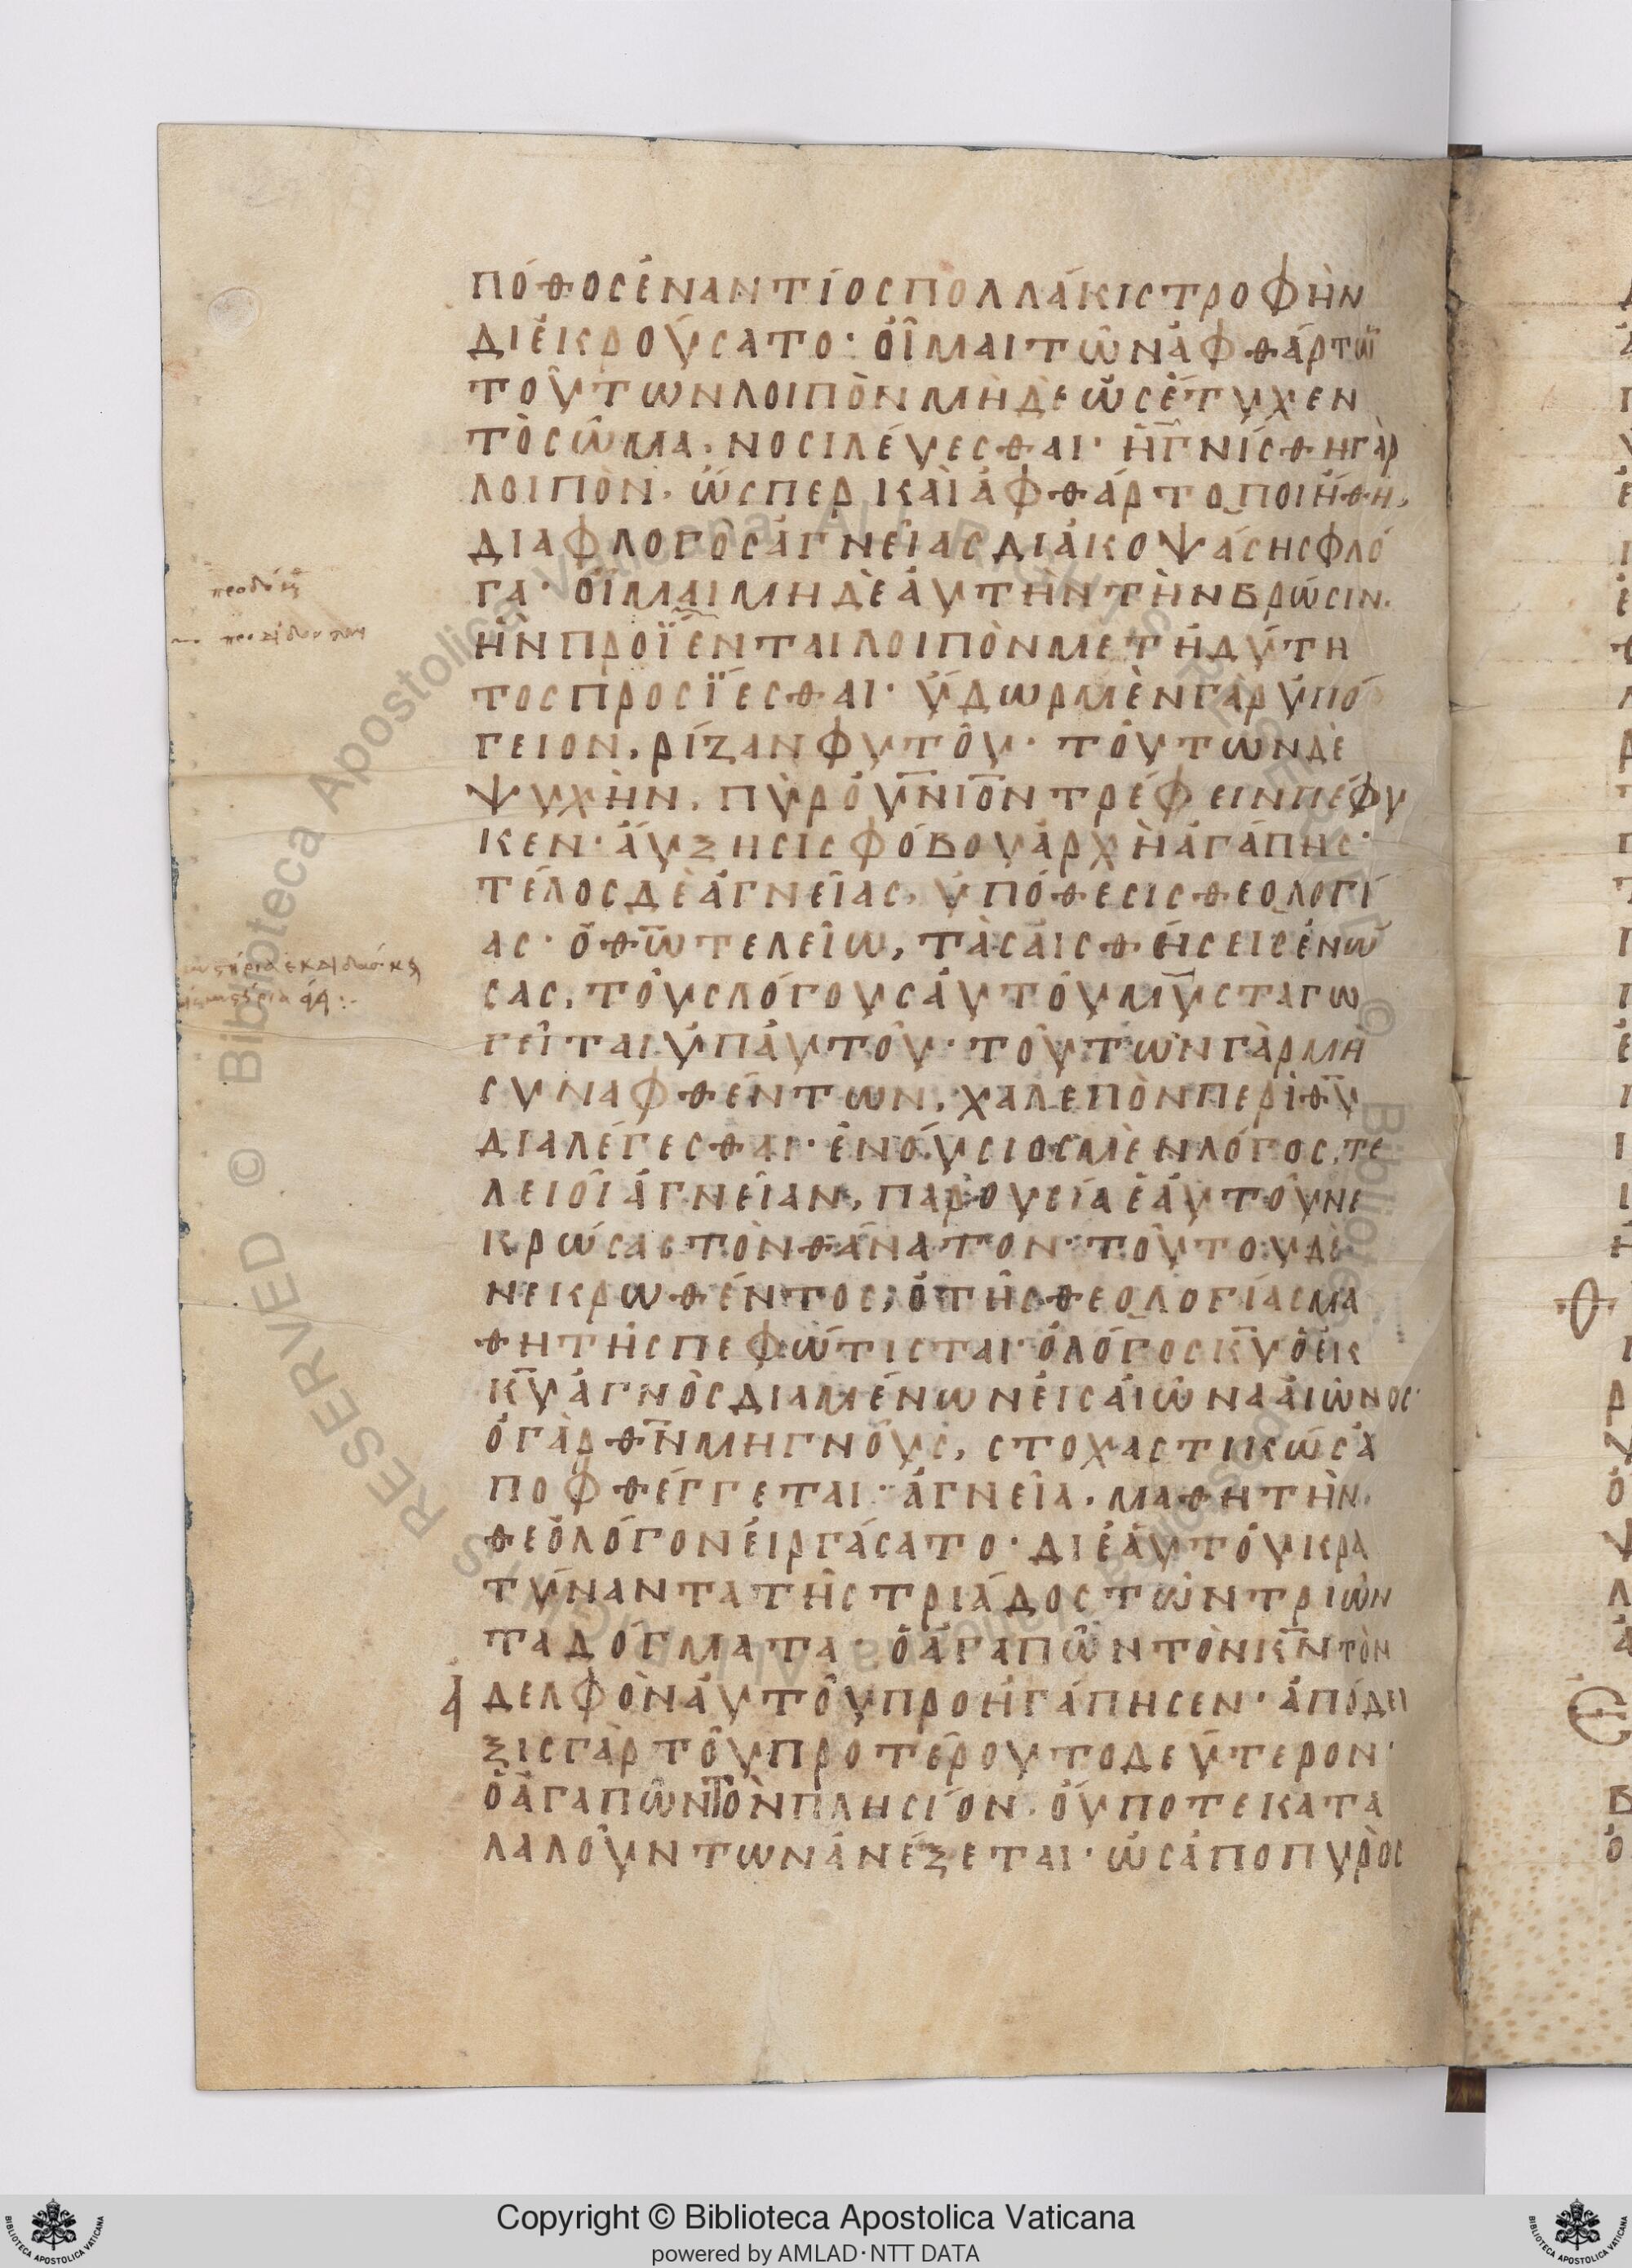 πόθος ἐναντίος πολλάκις τροφὴν
διεκρούσατο· οἶμαι τῶν ἀφθάρτω̄
τούτων λοιπὸν μὴδε ὡς ἔτυχεν
τὸ σῶμα, νοσιλέυεσθαι· ἡγνίσθη γὰρ
λοιπὸν, ὥσπερ καὶ ἀφθάρτοποιήθη,
δια φλογὸς ἁγνείας διακοψάσης φλό
γα· οἶμαι μηδὲ αὐτὴν τὴν βρῶσιν,
ἣν προϊένται λοιπὸν μετ ἡδύτη
τος προσΐεσθαι· ὕδωρ μὲν γὰρ ὑπό
γειον, ρίζαν φυτοῦ· τούτων δὲ
ψυχὴν, πῦρ οὐνιον τρέφειν πέφυ
κεν· αὔξησις φόβου ἀρχὴ ἀγάπης·
τέλος δὲ ἁγνείας, ὑπόθεσις θεολογί
ας· ὁ θω τελείω, τὰς αἰσθήσεις ἑνώ
σας, τοὺς λόγους αὐτοῦ μυσταγω
γεῖται ὑπ αὐτοῦ· τούτων γὰρ μὴ
συναφθέντων, χαλεπὸν περὶ θυ
διαλέγεσθαι· ἐνούσιος μὲν λόγος, τε
λειοῖ ἁγνείαν, παρουσία ἑαυτοῦ νε
κρώσας τὸν θάνατον· τούτου δὲ
νεκρωθέντος, ὁ τῆς θεολογίας μα
θητὴς πεφώτισται· ὁ λόγος κυ ὁ ἐκ
κυ ἁγνὸς διαμένων εἰς αἰῶνα αἰῶνος·
ὁ γὰρ θν μη γνοὺς, στοχαστικῶς ἀ
ποφθέγγεται· ἁγνεία, μαθητὴν,
θεολόγον εἰργάσατο· δι ἑαυτοῦ κρα
τύναντα τῆς τριάδος τῶν τριῶν
τα δόγματα· ὁ ἀγαπῶν τὸν κν τὸν
ἀδελφὸν αὐτοῦ προηγάπησεν· ἀπόδει
ξις γὰρ τοῦ προτέρου το δεύτερον·
ὁ ἀγαπῶν τὸν πλησίον, οὔποτε κατα
λαλούντων ἀνέξεται· ὡς ἀπο πυρὸς
Copyright © Biblioteca Apostolica Vaticana
powered by AMLAD·NTT DATA